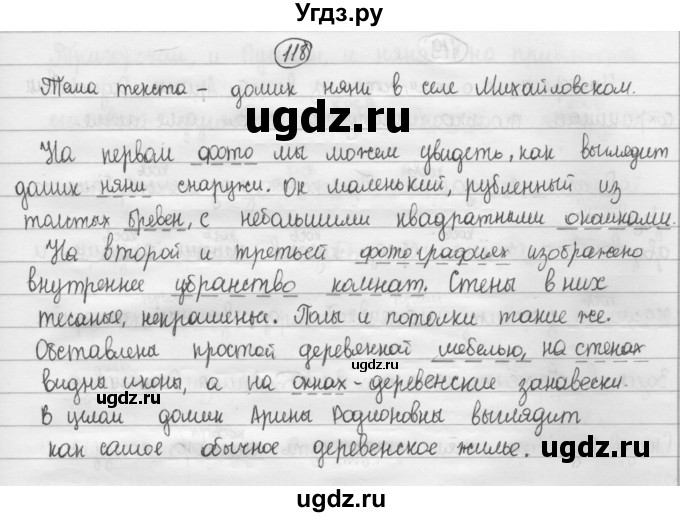 Угдз.ру
118
Тема текста - домик няни в селе Михайловском.
ugdz.ru
На первом фото мы можем увидеть, как выглядит
ugdz.ru
домик няни снаружи. Он маленький, рубленный из
толстых брёвен, с небольшими квадратными окошками.
ugdz.ru ugdz.ru
На второй и третьей фотографиях изображено
внутреннее убранство комнат. Стены в них
тесаные, некрашены. Полы и потолки такие же.
ugdz.ru
Обставлены простой деревянной мебелью, на стенах
видны иконы, а на окнах - деревенские занавески.
В целом домик Арины Родионовны выглядит
ugdz.ru ugdz.ru
как самое обычное деревенское жилье.
ugdz.ru